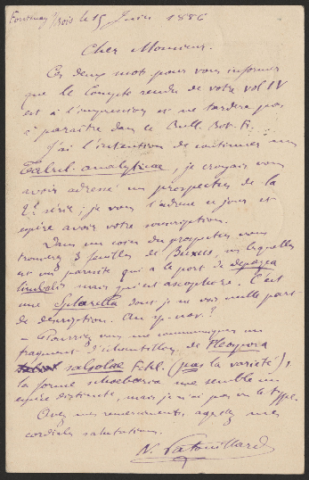 Fontenay s/bois le 15 Juin 1886
Cher Monsieur.
Ces deux mots pour vous informer
que le Compte rendu de votre vol IV
est à l'impression et ne tardera pas
à paraitre dans le Bull. Bot. Fr.
J'ai l'intention de continuer mes
Tabul. analyticæ, je croyais vous
avoir adressé un prospectus de la
2e série; je vous l'adresse ce jour et
espère avoir votre souscription.
Dans un coin du prospectus vous
trouverez 3 feuilles de Buxus, sur lesquelles
est un parasite qui a le port de depazea
mais qui est ascophore. C'est
une dont je ne vois nulle part
de description. An sp. nov.?
— Pourriez vous me communiquer un
fragment d'échantillon de Pleospora
salsolae Fckl. (pas la variété),
la forme me semble un
espèce distincte, mais je n'ai pas vu le type.
Avec mes remerciements, agréez mes
cordiales salutations.
N. Patouillard